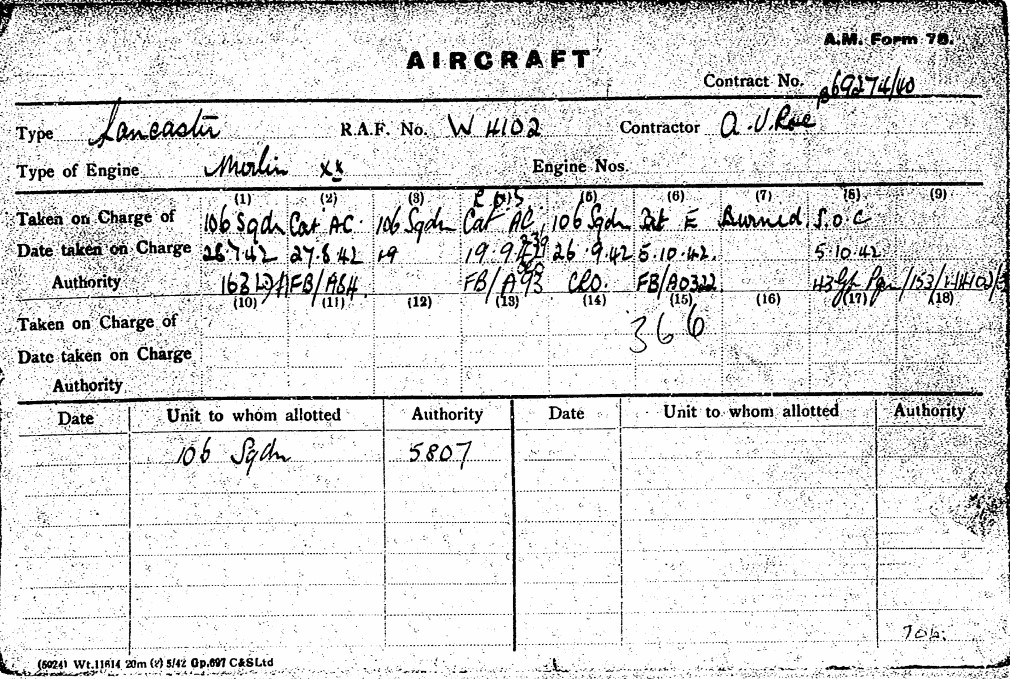 A.M. Form 78.
AIRCRAFT
Contract No. B69274/40
Type Lancaster R.A.F. No. W 4102 Contractor A.V.Roe
Type of Engine Merlin xx Engine Nos.
(1) (2) (3) (5) (6) (7) (8) (9)
Taken on Charge of 106 Sqdn Cat AC. 106 Sqdn Cat AC 106 Sqdn Cat E Burned. S.O.C
Date taken on Charge 28.7.42 27.8.42 19 19.9.42 26.9.42 5.10.42. 5.10.42
Authority FB/A84. FB/A93 CRO. FB/A0322 43 Gp
(10) (11) (12) (13) (14) (15) (16) (17) (18)
Taken on Charge of 366
Date taken on Charge
Authority
Date Unit to whom allotted Authority Date Unit to whom allotted Authority
106 Sqdn 5807
706.
(5024) Wt.11614 20m (2) 5/42 Gp.697 C&SLtd